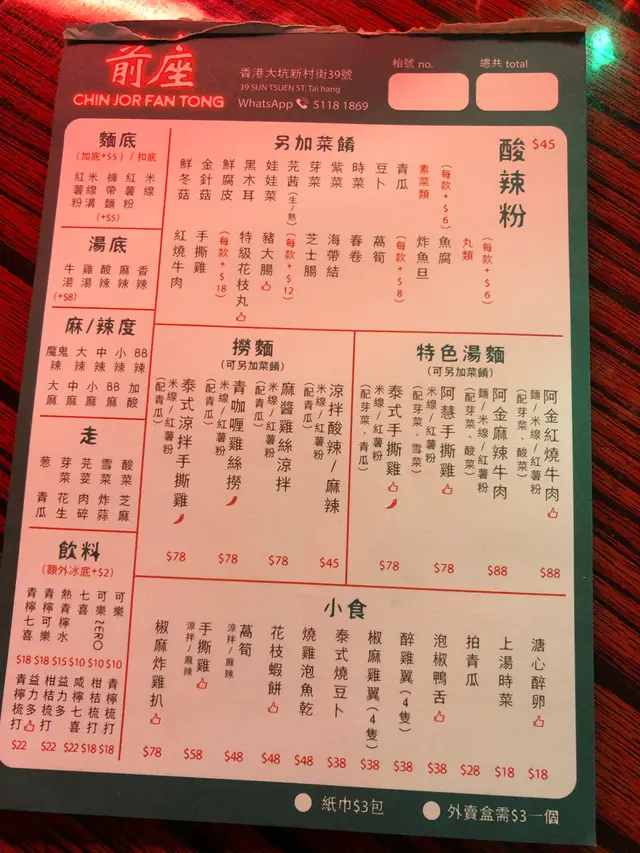 前座
CHIN JOR FAN TONG
香港大坑新村街39號
39 SUN TSUEN ST. Tai hang
WhatsApp 5118 1869
枱號 no.
總共 total
酸辣粉
$45
另加菜餚
丸類
(每款+$6)
魚腐
炸魚旦
(每款+$8)
素菜類
(每款+$6)
青瓜
豆卜
時菜
紫菜
芽菜
芫茜(生/熟)
娃娃菜
黑木耳
鮮腐皮
金針菇
鮮冬菇
萵筍
春卷
海帶結
芝士腸
(每款+$12)
豬大腸
特級花枝丸
(每款+$18)
手撕雞
紅燒牛肉
麵底
(加底+$5) / 扣底
米線
紅薯粉
褲帶麵
米線溝
紅薯粉
(+$5)
湯底
香辣
麻辣
酸辣
雞湯
牛湯
(+$8)
麻/辣度
BB辣
小辣
中辣
大辣
魔鬼辣
加酸
BB麻
小麻
中麻
大麻
走
酸菜
雪菜
芫荽
芽菜
葱
芝麻
炸蒜
肉碎
花生
青瓜
飲料
(額外冰底+$2)
可樂
$10
可樂ZERO
$10
七喜
$10
熱青檸水
$15
青檸可樂
$18
青檸七喜
$18
青檸梳打
$18
柑桔梳打
$18
咸檸七喜
$22
益力多
柑桔梳打
$22
益力多
青檸梳打
$22
特色湯麵
(可另加菜餚)
阿金紅燒牛肉
麵/米線/紅薯粉
(配芽菜、酸菜)
$88
阿金麻辣牛肉
麵/米線/紅薯粉
(配芽菜、酸菜)
$88
阿慧手撕雞
米線/紅薯粉
(配芽菜、雪菜)
$78
泰式手撕雞
米線/紅薯粉
(配芽菜、青瓜)
$78
撈麵
(可另加菜餚)
涼拌酸辣/麻辣
米線/紅薯粉
(配青瓜)
$45
麻醬雞絲涼拌
米線/紅薯粉
(配青瓜)
$78
青咖喱雞絲撈
米線/紅薯粉
(配青瓜)
$78
泰式涼拌手撕雞
米線/紅薯粉
(配青瓜)
$78
小食
溏心醉卵
$18
上湯時菜
$18
拍青瓜
$28
泡椒鴨舌
$38
醉雞翼(4隻)
$38
椒麻雞翼(4隻)
$38
泰式燒豆卜
$38
燒雞泡魚乾
$48
花枝蝦餅
$48
萵筍
涼拌/麻辣
$48
手撕雞
涼拌/麻辣
$58
椒麻炸雞扒
$78
紙巾$3包
外賣盒需$3一個